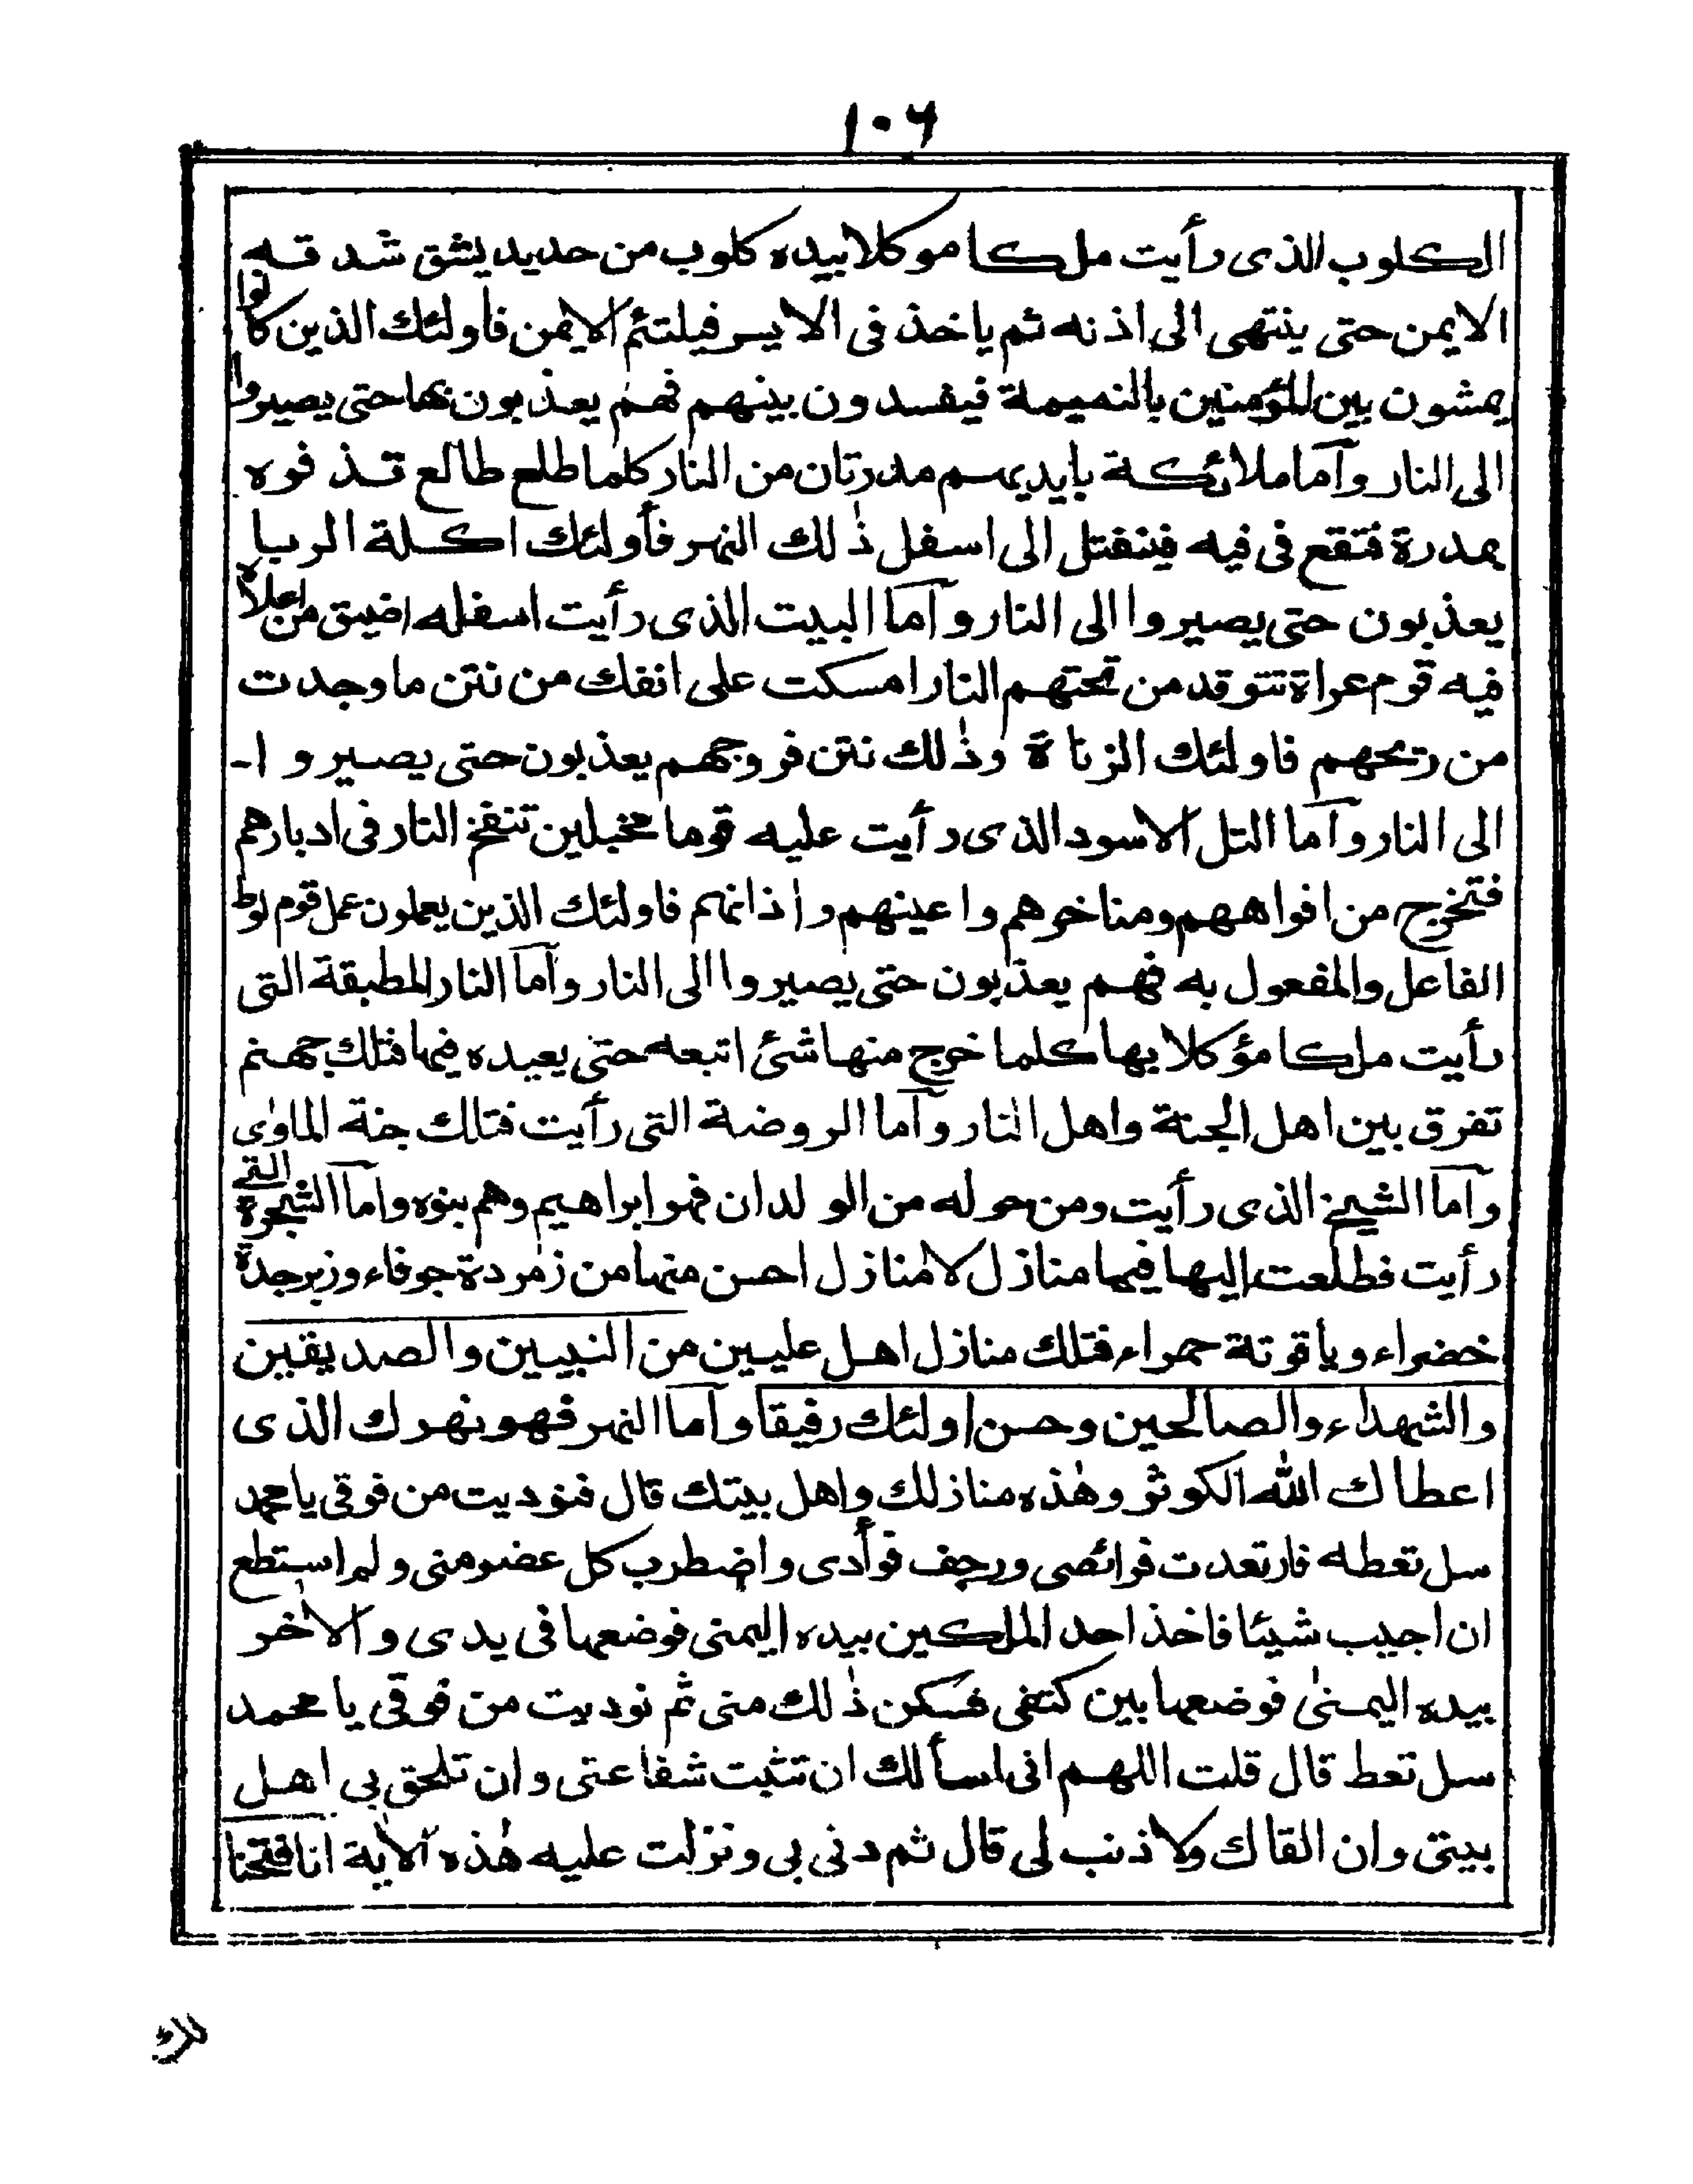 ١٠٦
الكلوب الذى رأيت ملكا موكلا بيده كلوب من حديد يشق شدقه
الايمن حتى ينتهى الى اذنه ثم ياخذ فى الايسر فيلتئم الايمن فاولئك الذين كانوا
يمشون بين المؤمنين بالنميمة فيفسدون بينهم فهم يعذبون بها حتى يصيروا
الى النار وآما ملائكة بايديهم مدرتان من النار كلما طلع طالع قذفوه
بمدرة فتقع فى فيه فينفتل الى اسفل ذٰلك النهر فأولئك اكلة الربا
يعذبون حتى يصيروا الى النار وآما البيت الذى رأيت اسفله اضيق من اعلاه
فيه قوم عراة تتوقد من تحتهم النار امسكت على انفك من نتن ما وجدت
من ريحهم فاولئك الزناة وذٰلك نتن فروجهم يعذبون حتى يصيروا
الى النار وآما التل الاسود الذى رأيت عليه قوما مخبلين تنفخ النار فى ادبارهم
فتخرج من افواههم ومناخرهم واعينهم واٰذانهم فاولئك الذين يعملون عمل قوم لوط
الفاعل والمفعول به فهم يعذبون حتى يصيروا الى النار وآما النار المطبقة التى
رأيت ملكا مؤكلا بها كلما خرج منها شئ اتبعه حتى يعيده فيها فتلك جهنم
تفرق بين اهل الجنة واهل النار وآما الروضة التى رأيت فتلك جنة الماوٰى
وآما الشيخ الذى رأيت ومن حوله من الولدان فهو ابراهيم وهم بنوه وآما الشجرة التى
رأيت فطلعت اليها فيها منازل لا منازل احسن منها من زمردة جوفاء وزبرجدة
خضراء وياقوتة حمراء فتلك منازل اهل عليين من النبيين والصديقين
والشهداء والصالحين وحسن اولئك رفيقا وآما النهر فهو نهرك الذى
اعطاك الله الكوثر وهٰذه منازلك واهل بيتك قال فنوديت من فوقى يا محمد
سل تعطه فارتعدت فرائصى ورجف فوأدى واضطرب كل عضو منى ولم استطع
ان اجيب شيئا فاخذ احد الملكين بيده اليمنى فوضعها فى يدى والاٰخر
بيده اليمنىٰ فوضعها بين كتفى فسكن ذٰلك منى ثم نوديت من فوقى يا محمد
سل تعط قال قلت اللهم انى اسألك ان تثبت شفاعتى وان تلحق بى اهل
بيتى وان القاك ولا ذنب لى قال ثم دنى بى ونزلت عليه هٰذه الاٰية انا فتحنا
لك